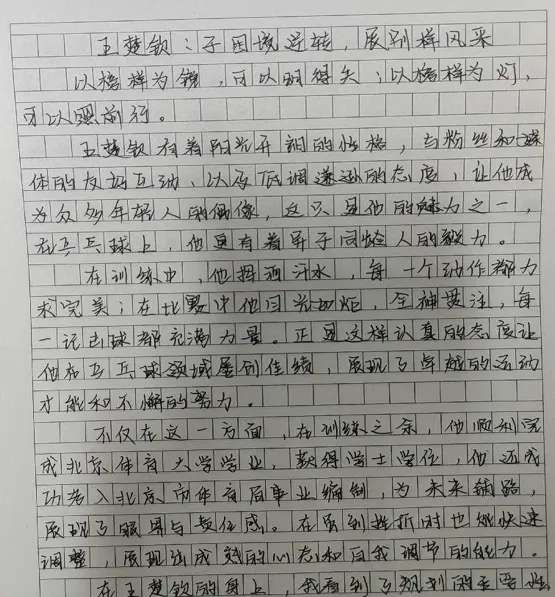 王楚钦：于困境逆转，展别样风采
以榜样为镜，可以明得失；以榜样为灯，
可以照前行。
王楚钦有着阳光开朗的性格，与粉丝和媒
体的友好互动、以及低调谦逊的态度，让他成
为众多年轻人的偶像，这只是他的魅力之一，
在乒乓球上，他更有着异于同龄人的毅力。
在训练中，他挥洒汗水，每一个动作都力
求完美；在比赛中他目光如炬，全神贯注，每
一记击球都充满力量。正是这样认真的态度让
他在乒乓球领域屡创佳绩，展现了卓越的运动
才能和不懈的努力。
不仅在这一方面，在训练之余，他顺利完
成北京体育大学学业，获得学士学位，他还成
功考入北京市体育局事业编制，为未来铺路，
展现了眼界与责任感。在遇到挫折时也能快速
调整，展现出成熟的心态和自我调节的能力。
在王楚钦的身上，我看到了规划的重要性